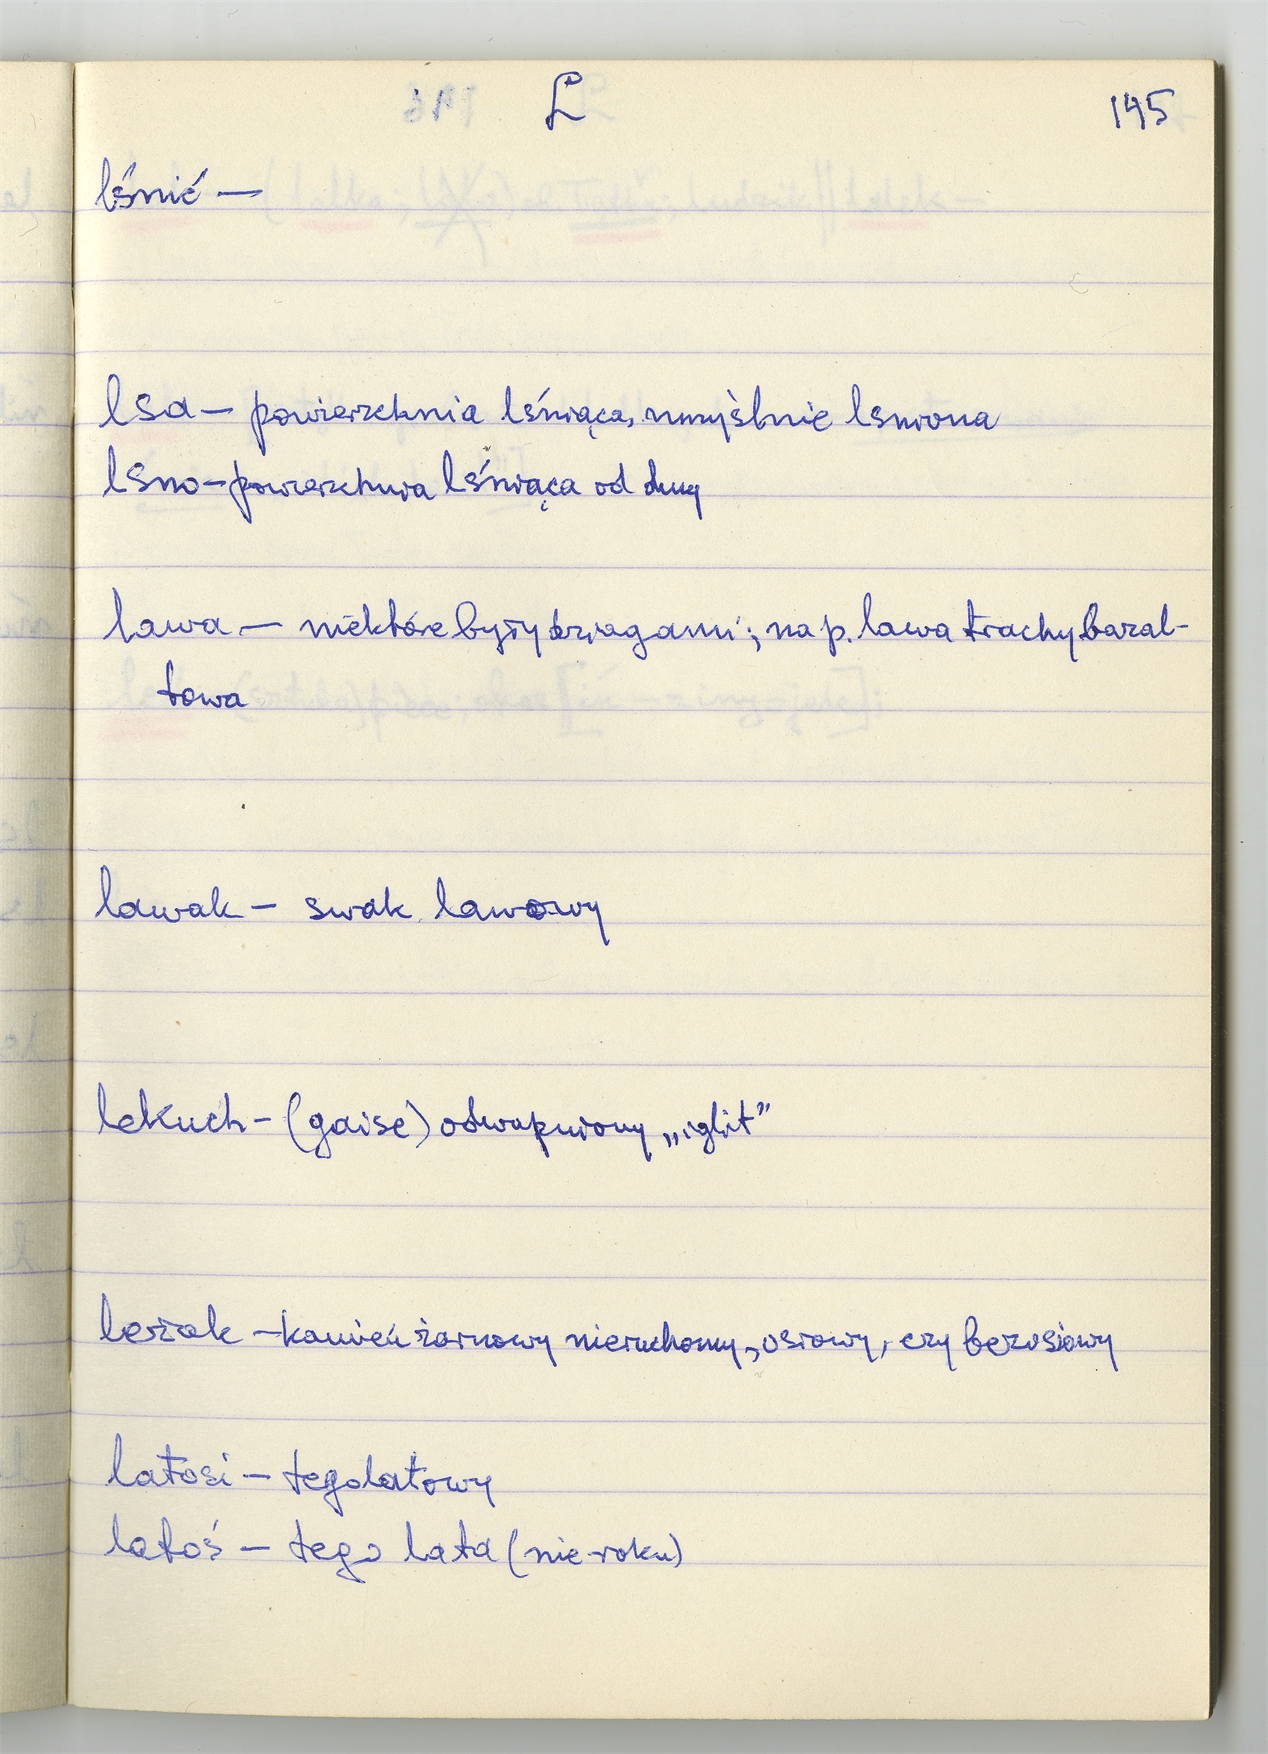 L 195
lśnić —
lsa — powierzchnia lśniąca, umyślnie lsniona
lsno — powierzchnia lśniąca od dumy
lawa — niektóre były bryzgami; na p. lawa trachybazal-
towa
lawak — swak lawowy
lekuch — (gaise) odwapniony „iglit”
leżak — kamień żarnowy nieruchomy, osiowy, czy bezosiowy
latosi — tegolatowy
latoś — tego lata (nie roku)